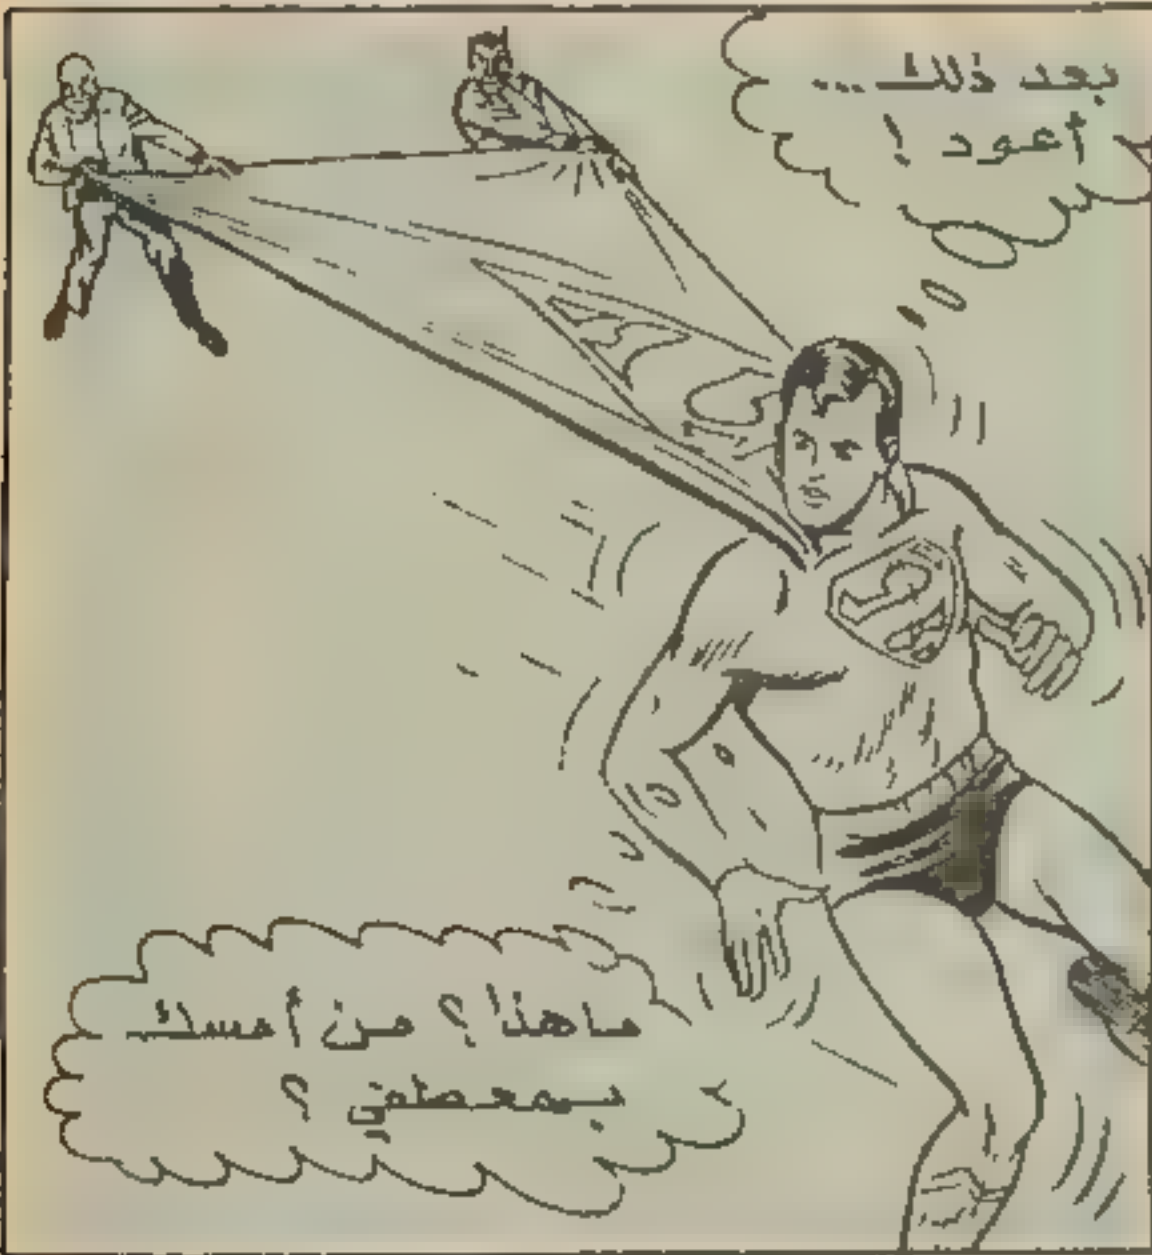 بعد ذلك...
أعود !
ماهذا ؟ من أمسك
بمعطفي ؟